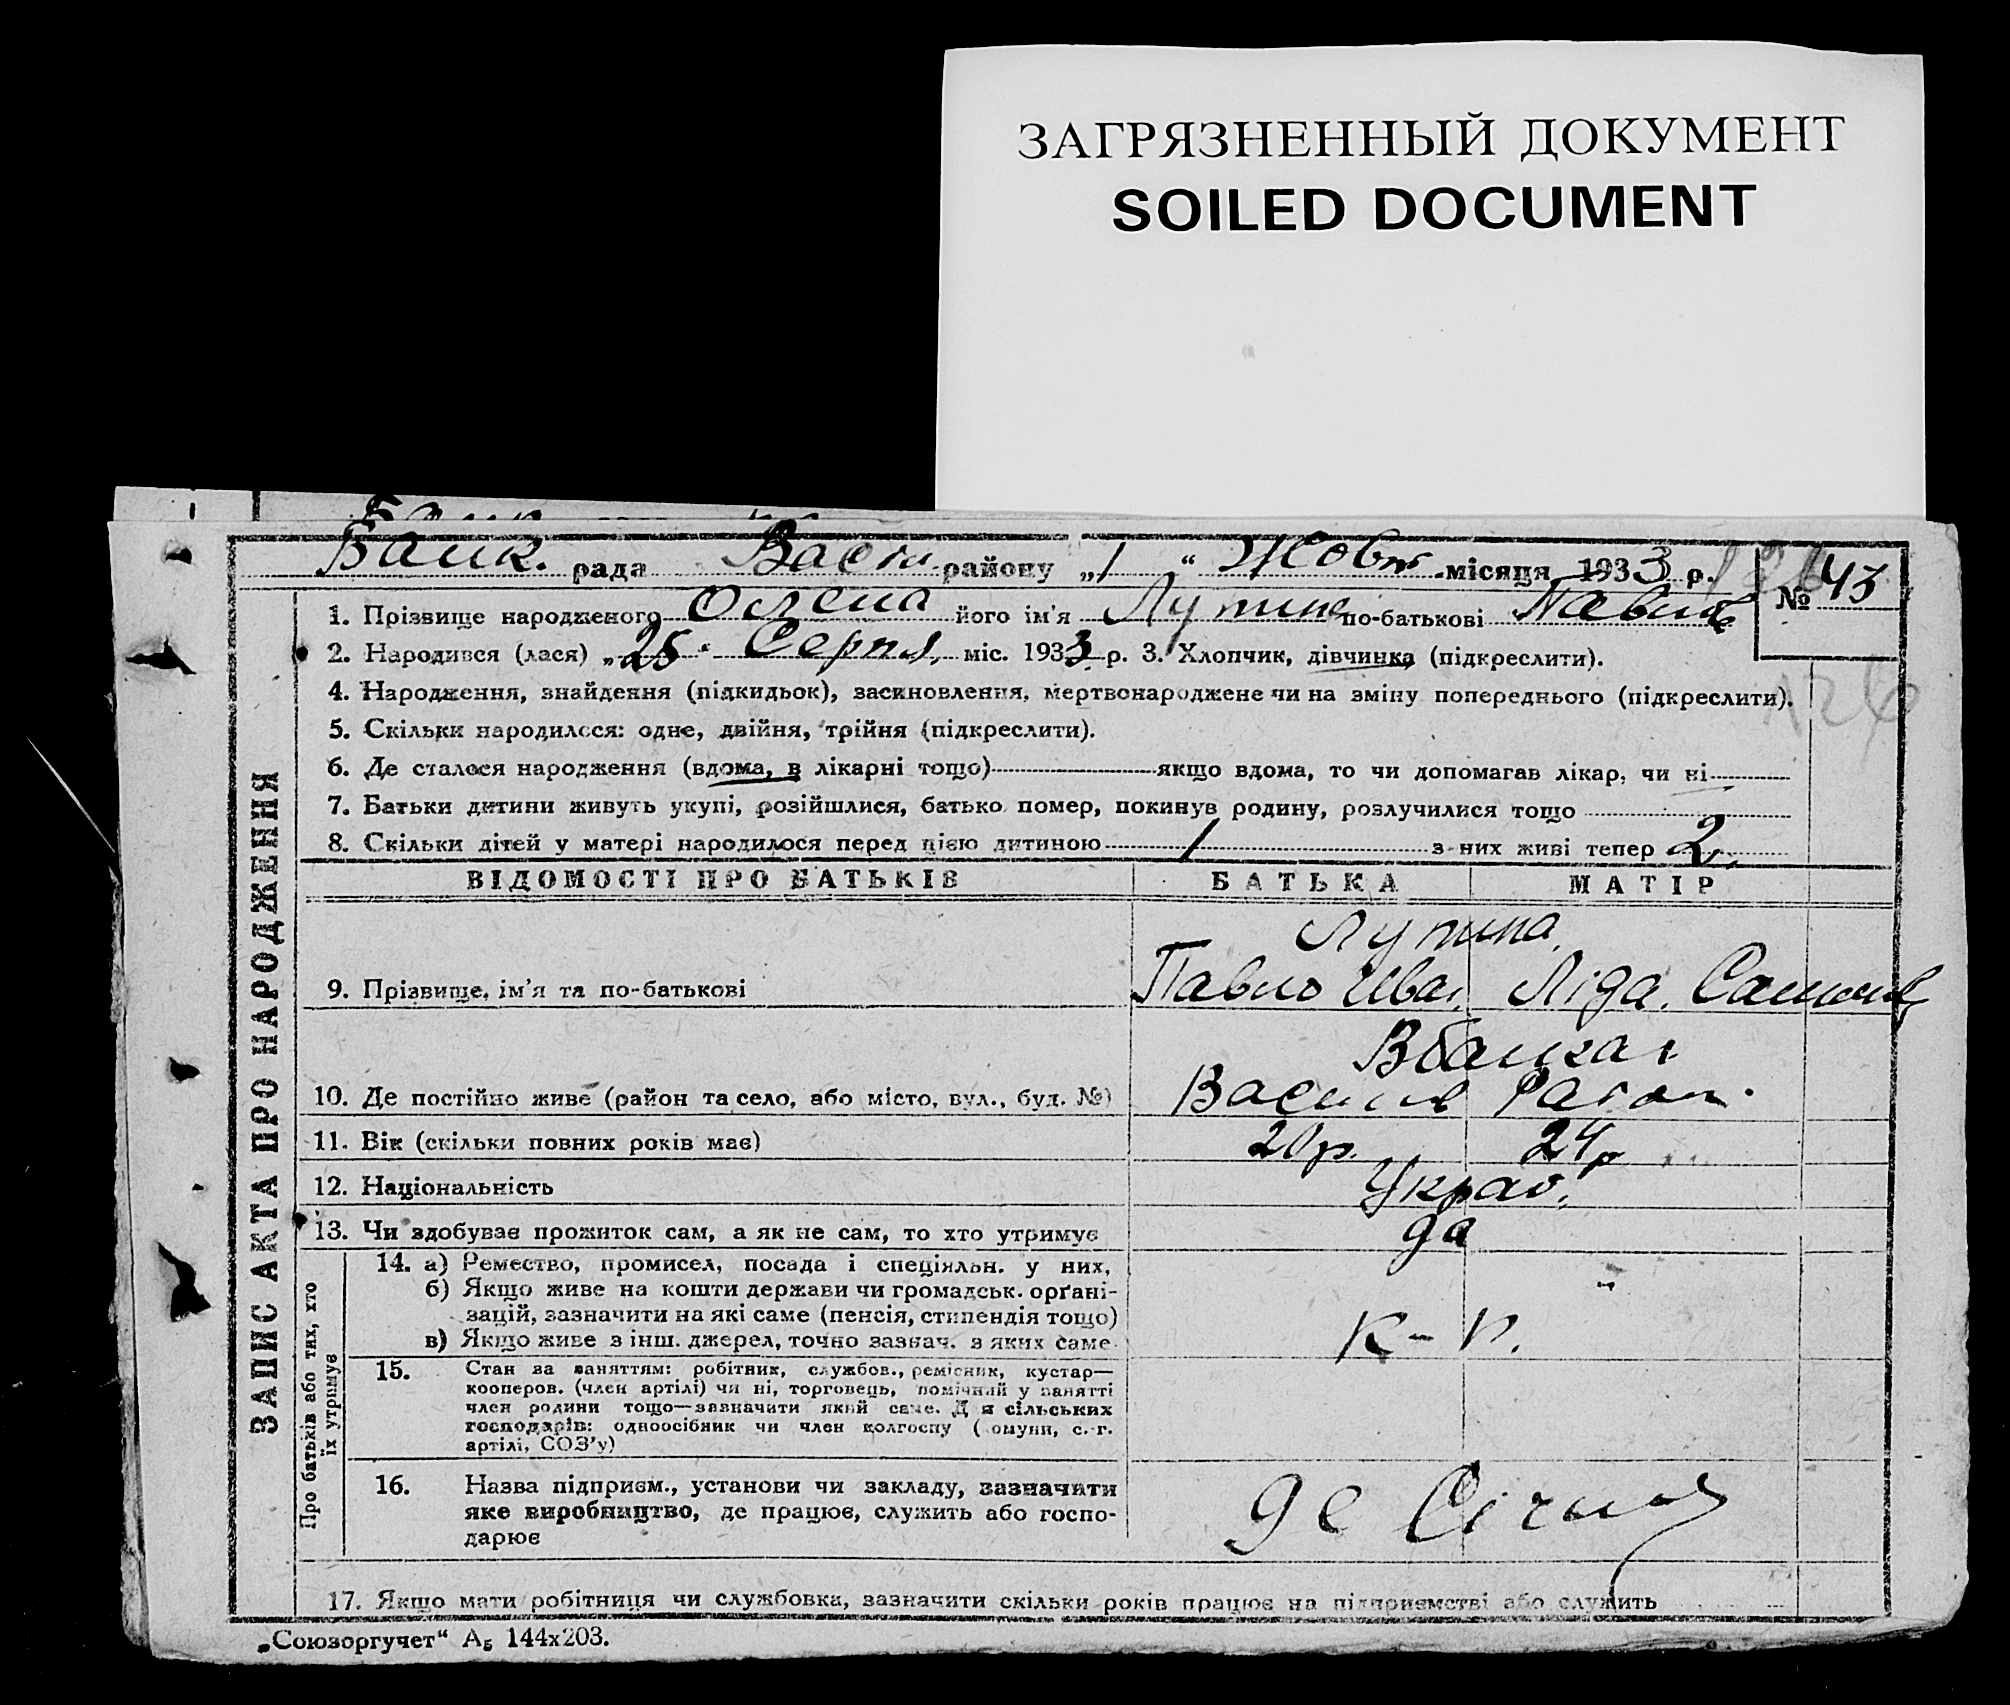 ЗАГРЯЗНЕННЫЙ ДОКУМЕНТ
SOILED DOCUMENT
рада Васи. району „1“ Жовт. місяця 1933 р.
№ 43
1. Прізвище народженого Олена його ім'я Лупина по-батькові Павлов
2. Народився (лася) „25“ Серпня міс. 1933 р. 3. Хлопчик, дівчинка (підкреслити).
126
4. Народження, знайдення (підкидьок), засиновлення, мертвонароджене чи на зміну попереднього (підкреслити).
5. Скільки народилося: одне, двійня, трійня (підкреслити).
6. Де сталося народження (вдома, в лікарні тощо) якщо вдома, то чи допомагав лікар, чи ні
7. Батьки дитини живуть укупі, розійшлися, батько помер, покинув родину, розлучилися тощо
8. Скільки дітей у матері народилося перед цією дитиною 1 з них живі тепер 2.
ЗАПИС АКТА ПРО НАРОДЖЕННЯ
ВІДОМОСТІ ПРО БАТЬКІВ БАТЬКА МАТІР
Лупина
9. Прізвище, ім'я та по-батькові Павло Иван. Ліда.
10. Де постійно живе (район та село, або місто, вул., буд. №)
11. Вік (скільки повних років має) 20р. 24р
12. Національність Украо.
13. Чи здобуває прожиток сам, а як не сам, то хто утримує да
Про батьків або тих, хто їх утримує
14. а) Ремество, промисел, посада і спеціяльн. у них,
б) Якщо живе на кошти держави чи громадськ. орґані-
зацій, зазначити на які саме (пенсія, стипендія тощо)
в) Якщо живе з інш. джерел, точно зазнач. з яких саме
к-п.
15. Стан за заняттям: робітник, службов., ремісник, кустар—
кооперов. (член артілі) чи ні, торговець, помічний у занятті
член родини тощо—зазначати який саме. Д я сільських
господарів: одноосібник чи член колгоспу ( омуни, с.-г.
артілі, СОЗ'у)
16. Назва підприєм., установи чи закладу, зазначити
яке виробництво, де працює, служить або госпо-
дарює
17. Якщо мати робітниця чи службовка, зазначити скільки років працює на підприємстві або служить
„Союзоргучет“ А₅ 144х203.